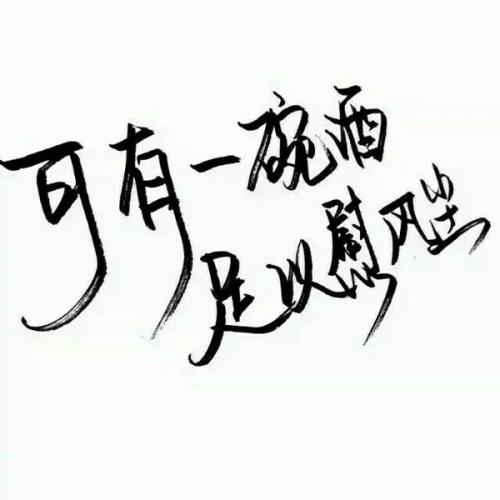 可有一碗酒
足以慰风尘